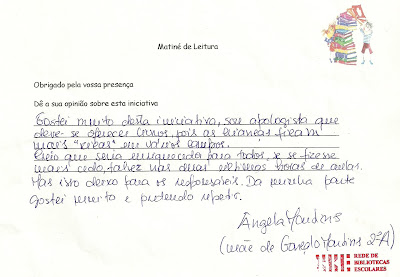 Matiné de Leitura
Obrigado pela vossa presença
Dê a sua opinião sobre esta iniciativa
Gostei muito desta iniciativa, sou apologista que
deve-se oferecer livros, pois as crianças ficam
mais "ricas" em vários campos.
Creio que seria enriquecedor para todos, se se fizesse
mais cedo, talvez nas duas últimas horas de aulas.
Mas isto deixo para os responsáveis. Da minha parte
gostei muito e pretendo repetir.
Ângela Martins
(mãe de Gonçalo Martins 2ºA)
REDE DE
BIBLIOTECAS
ESCOLARES